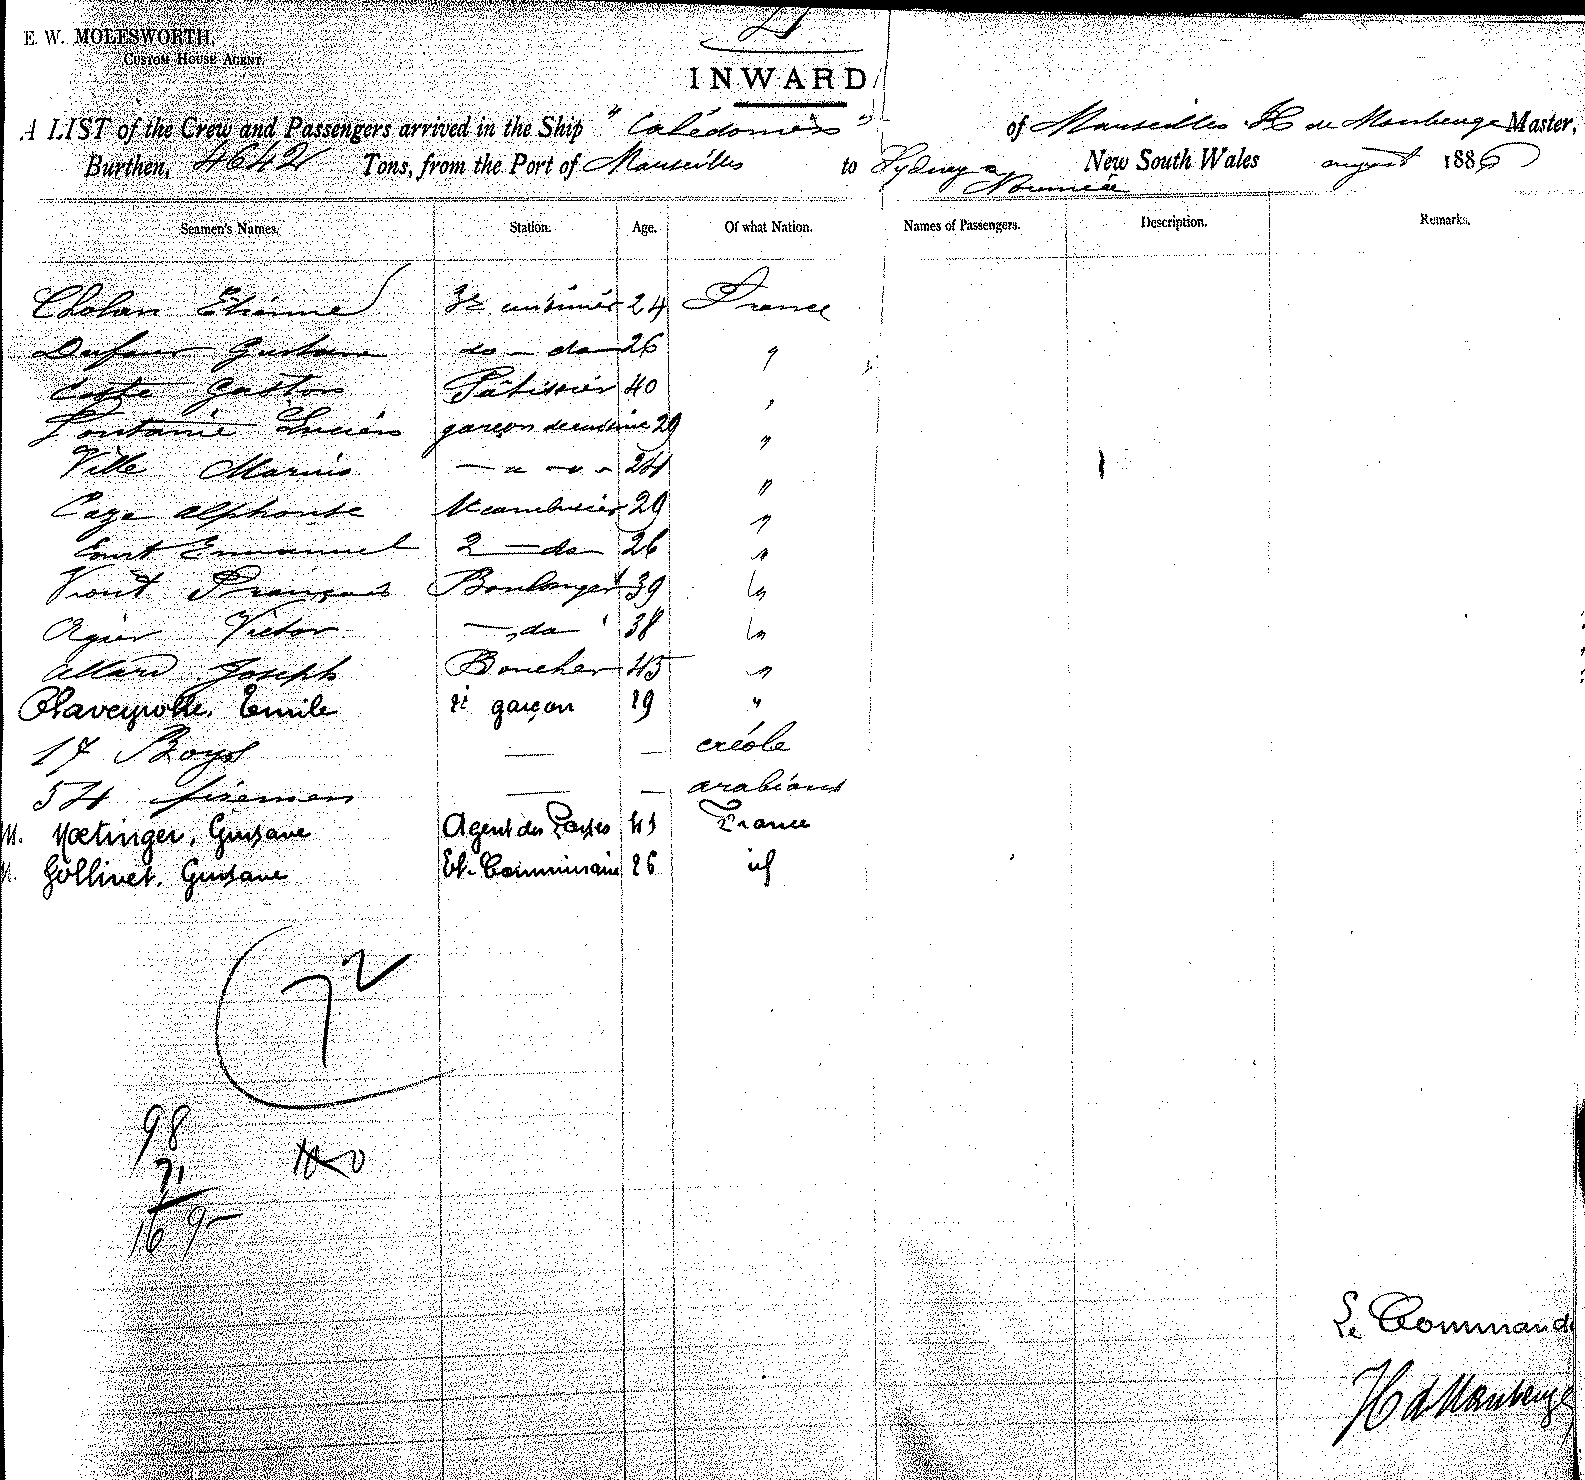 E. W. MOLESWORTH,
CUSTOM HOUSE AGENT.
INWARD
A LIST of the Crew and Passengers arrived in the Ship "Calédonien" of Marseilles H de Maubeuge Master,
Burthen, 4642 Tons, from the Port of Marseilles to Sydney & New South Wales august 1886
Nouméa
Seamen's Names. Station. Age. Of what Nation. Names of Passengers. Description. Remarks.
Etienne 3e cuisinier 24 France
Dufour Gustave do - do 26 "
Coste Gaston Pâtissier 40 "
Fontaine Lucien garçon de cuisine 29 "
Ville Marius — " — " — " 24 "
Alphonse 29 "
Emmanuel 2 — do — 26 "
François Boulanger 39 "
Agier Victor — do — 38 "
Allard Joseph Boucher 45 "
Claveyrolle, Emile garçon 19 "
17 Boys — — créole
54 firemen — — arabians
M. Gustave Agent des Postes 43 France
M. Gollivet, Gustave Et. Commissaire 26 id
72
98
71
169
Le Commandant
H d Maubeuge